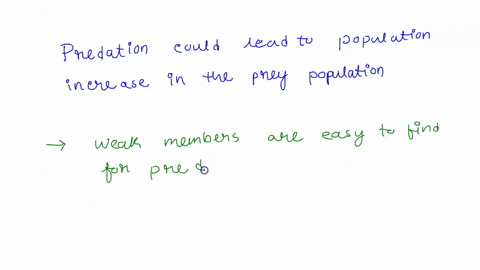 Predation could lead to population
increase in the prey population
→ weak members are easy to find
for pred